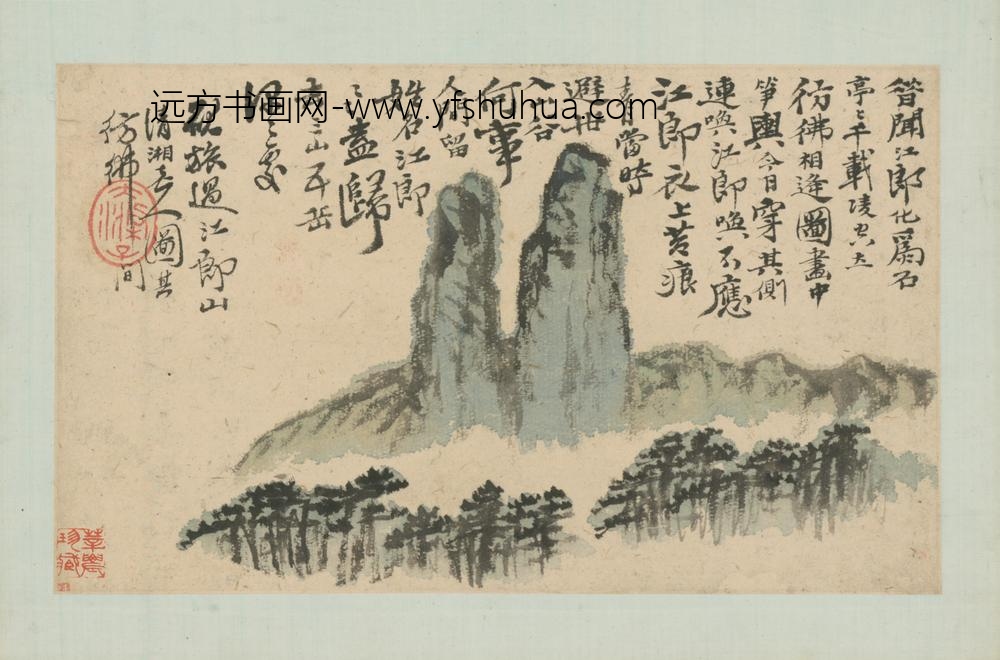 聞江郎化爲石
亭〻千載陵空立
彷彿相逢圖畫中
筍輿今日穿其側
連喚江郎喚不應
江郎衣上苔痕
青當時
避世
入谷
何事
留
姓名江郎
〻盍歸
去三山五岳
處
旅過江郎山
清湘老人圖其
彷彿間
珍藏
远方书画网-www.yfshuhua.com